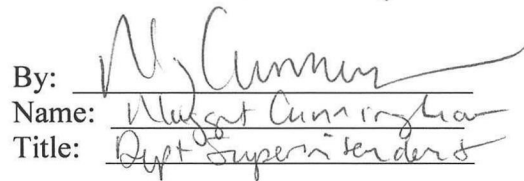 By: M Cunnin
Name: Margaret Cunningham
Title: Dept Superintendent